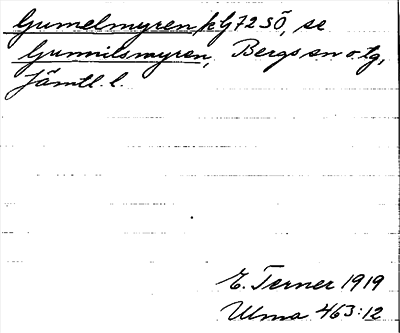 Gumelmyren kG72SÖ, se
Gunnilsmyren, Bergs sn o. tg,
Jämtl. l.
E. Terner 1919
Ulma 463:12